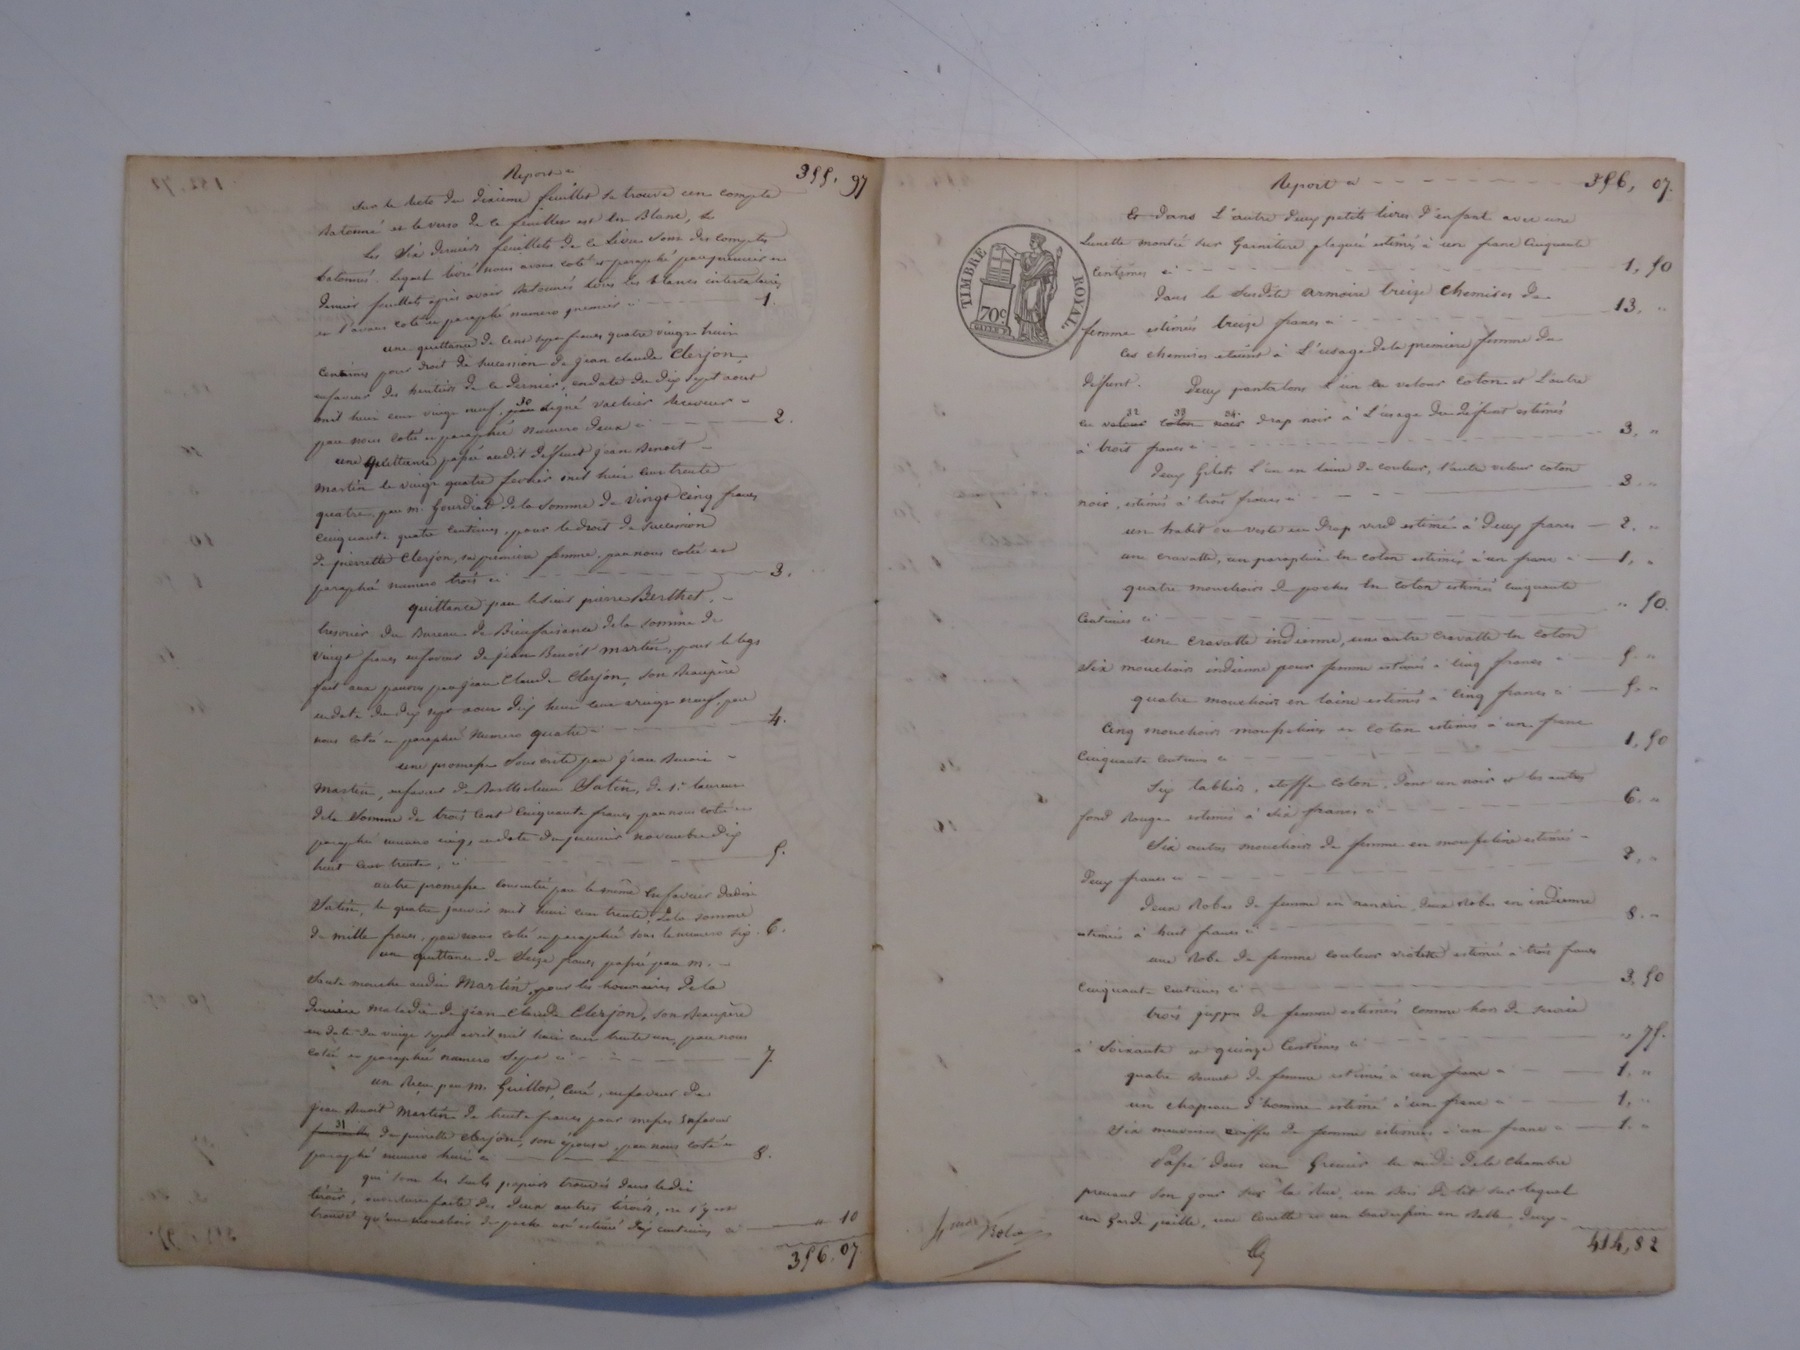 Report ci 355, 97
Sur le recto du dixieme feuillet se trouve un compte
Batonné et le verso de ce feuillet est en Blanc, &
Les Six derniers feuillets de ce Livre sont des comptes
Batonnés. Lequel livré nous avons coté et paraphé par premier et
dernier feuillets après avoir Batonnés tous les blancs intercalaires
et l'avons coté et paraphé numero premier ci 1.
une quittance de Cent sept francs quatre vingt huit
Centimes pour droit de succession de jean claude Clerjon
enfaveur des heritiers de ce dernier, en date du dix sept aout
mil huit cent vingt neuf, 30 signé vachier Receveur
par nous cotée et paraphée numero deux ci 2.
une quittance passée audit deffunt jean Benoit
Martin le vingt quatre fevrier mil huit cent trente
quatre, par m. Gourdiat de la Somme de vingt cinq francs
cinquante quatre centimes, pour le droit de succession
de pierrette Clerjon, sa premiere femme, par nous cotée et
paraphé numero trois ci 3.
quittance par le sieur pierre Berthet,
tresorier du Bureau de Bienfaisance de la somme de
Vingt francs enfaveur de jean Benoit Martin, pour le legs
fait aux pauvres par jean Claude Clerjon, son Beaupère
en date du dix sept aout dix huit cent vingt neuf, par
nous cotée et paraphé Numero quatre ci 4.
une promesse Souscrite par jean Benoit
Martin, enfaveur de Barthelemi Satin, de St. laurent
de la Somme de trois Cent Cinquante francs par nous cotée et
paraphé numero cinq, en date du premier novembre dix
huit cent trente, ci 5.
autre promesse consentie par le même Enfaveur dudit
Satin, le quatre janvier mil huit cent trente, De la somme
de mille francs, par nous cotée et paraphée sous le numero six. 6.
une quittance de Seize francs passée par m.
audit Martin, pour les honoraires de la
derniere maladie de jean Claude Clerjon, son Beaupère
en date du vingt sept avril mil huit cent trente un, par nous
cotée et paraphée numero Sept ci 7
un Reçu par m. Guillot, Curé, enfaveur de
jean Benoit Martin de trente francs pour messes Enfaveur
31 de pierrette Clerjon, son épouse, par nous cotée et
paraphé numero huit ci 8.
qui sont les seuls papiers trouvés dans ledit
tiroir, ouverture faite des deux autres tiroirs, il s'y est
trouvé qu'un mouchoir de poche usé estimé dix centimes ci " 10
356. 07
Report ci 356, 07.
Et dans L'autre deux petits livres d'enfant avec une
Lunette montée sur Garniture plaquée estimés à un franc Cinquante
Centimes ci 1, 50
TIMBRE ROYAL
70c
dans la Susdite armoire treize Chemises de
femme estimées treize francs ci 13, "
Ces chemises etaient à L'usage de la premiere femme du
deffunt. Deux pantalons L'un en velour coton et L'autre
en velour 32 coton 33 noir 34 drap noir à L'usage du deffunt estimés
à trois francs ci 3, "
Deux Gilets L'un en laine de couleur, l'autre velour coton
noir, estimés à trois francs ci 3 "
un habit ou veste en Drap verd estimé à Deux francs 2, "
une cravatte, un parapluie en coton estimés à un franc ci 1, "
quatre mouchoirs de poches En coton estimés cinquante
Centimes ci " 50.
une cravatte indienne, une autre cravatte en coton
Six mouchoirs indienne pour femme estimés à cinq francs ci 5. "
quatre mouchoirs en laine estimés à Cinq francs ci 5. "
Cinq mouchoirs mousseline et coton estimés à un franc
Cinquante Centimes ci 1, 50
Six tabliers, etoffe coton, dont un noir et les autres
fond Rouge estimés à six francs ci 6. "
Six autres mouchoirs de femme en mousseline estimés
Deux francs ci 2, "
Deux Robes de femme en nankin, deux Robes en indienne
estimées à huit francs ci 8. "
une Robe de femme couleur violette estimée à trois francs
Cinquante centimes ci 3, 50
trois juppes de femme estimées comme hors de service
à Soixante et quinze Centimes ci " 75.
quatre Bonnet de femme estimés à un franc ci 1, "
un chapeau d'homme estimé à un franc ci 1, "
Six mauvaises coiffes de femme estimées à un franc ci 1. "
Passé dans un Grenier au midi de la Chambre
prenant son jour sur la Rue, un Bois de lit sur lequel
un Garde paille, une Couette et un traversin en Balle, deux
414, 82